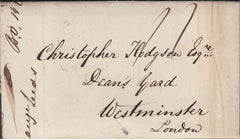 Christopher Hodgson Esqre
Deans Yard
Westminster
London